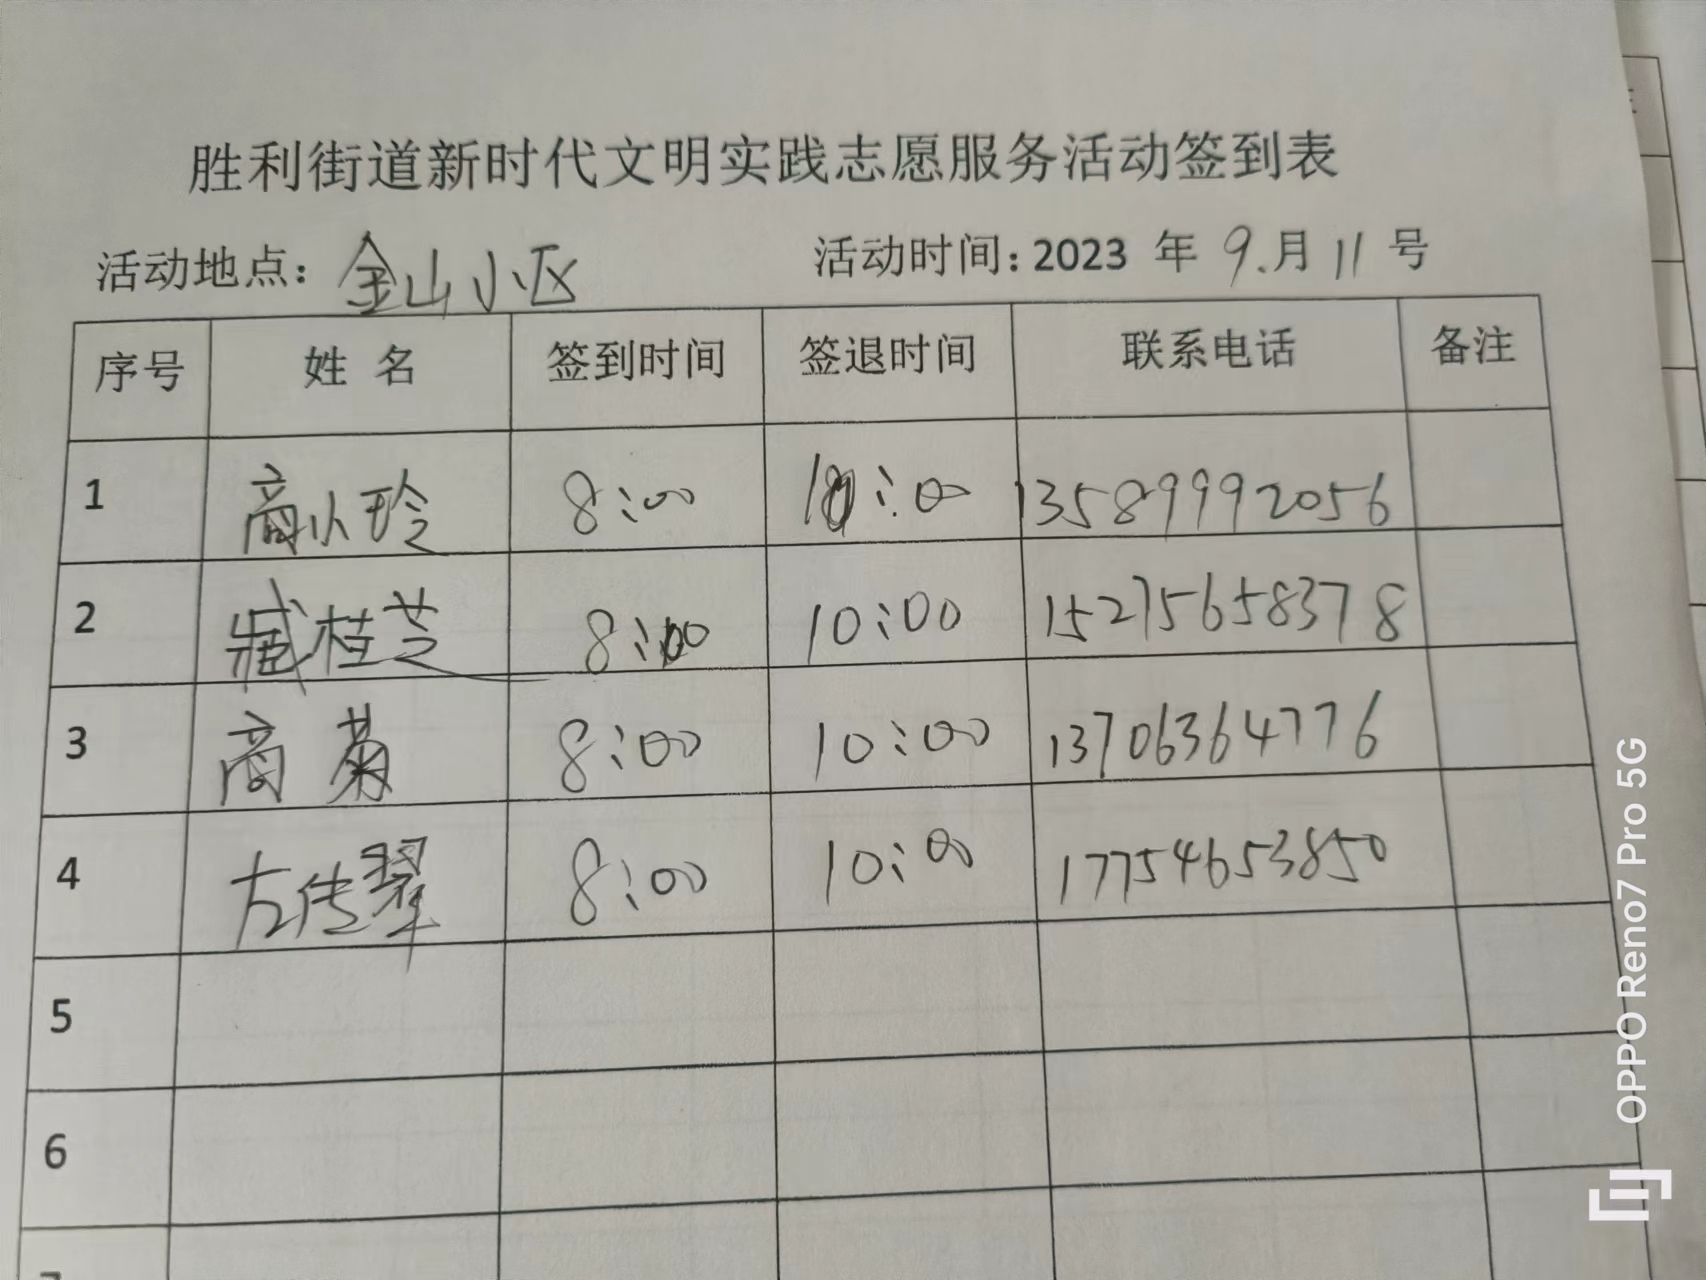 胜利街道新时代文明实践志愿服务活动签到表
活动地点: 金山小区 活动时间: 2023 年 9.月 11 号
序号 姓 名 签到时间 签退时间 联系电话 备注
1 商小玲 8:00 10:00 13589992056
2 臧桂芝 8:00 10:00 15275658378
3 商菊 8:00 10:00 13706364776
4 左传翠 8:00 10:00 17754653850
5
6
OPPO Reno7 Pro 5G